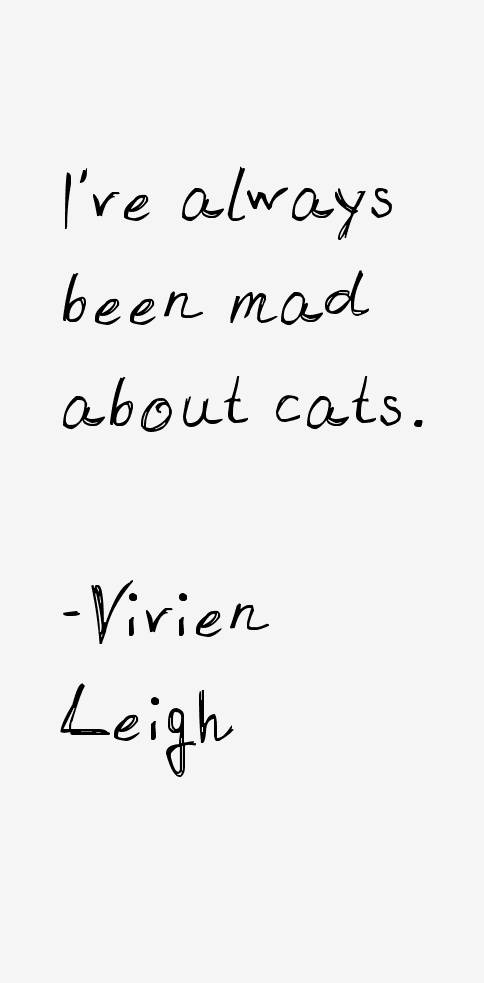 I've always
been mad
about cats.
-Vivien
Leigh